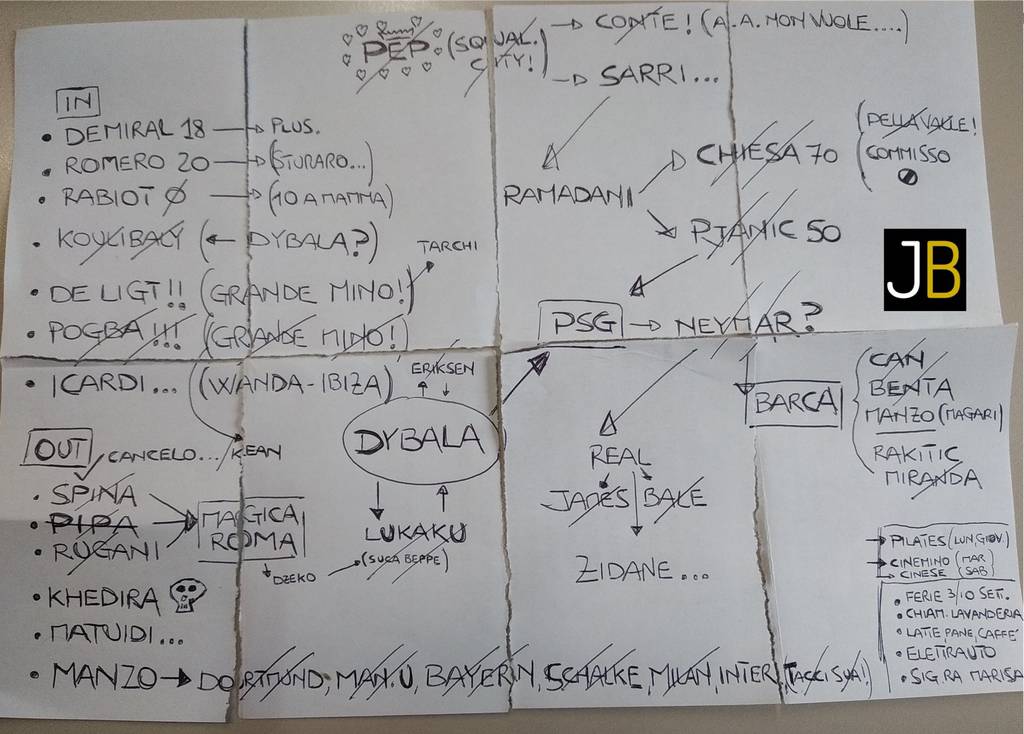 PEP (SQUAL. CITY!) → CONTE! (A.A. NON VUOLE....)
→ SARRI...
IN
• DEMIRAL 18 → PLUS.
• ROMERO 20 → (STURARO...)
• RABIOT Ø → (10 A MAMMA)
• KOULIBALY (← DYBALA?)
• DE LIGT!! (GRANDE MINO!) → TARCHI
• POGBA!!! (GRANDE MINO!)
• ICARDI... (WANDA-IBIZA)
RAMADANI → CHIESA 70
(DELLA VALLE!
(COMMISSO
→ PJANIC 50
JB
PSG → NEYMAR?
ERIKSEN
DYBALA
LUKAKU
(SUCA BEPPE)
REAL
JAMES BALE
ZIDANE...
BARCA
CAN
BENTA
MANZO (MAGARI)
RAKITIC
MIRANDA
OUT
CANCELO... / KEAN
• SPINA
• PIPA
• RUGANI
MAGICA
ROMA
→ DZEKO
• KHEDIRA
• MATUIDI...
• MANZO → DORTMUND, MAN.U, BAYERN, SCHALKE, MILAN, INTER, (TACCI SUA!)
→ PILATES (LUN, GIOV.)
→ CINEMINO (MAR
→ CINESE (SAB)
• FERIE 3/10 SETT.
• CHIAM. LAVANDERIA
• LATTE, PANE, CAFFE'
• ELETTRAUTO
• SIG.RA MARISA